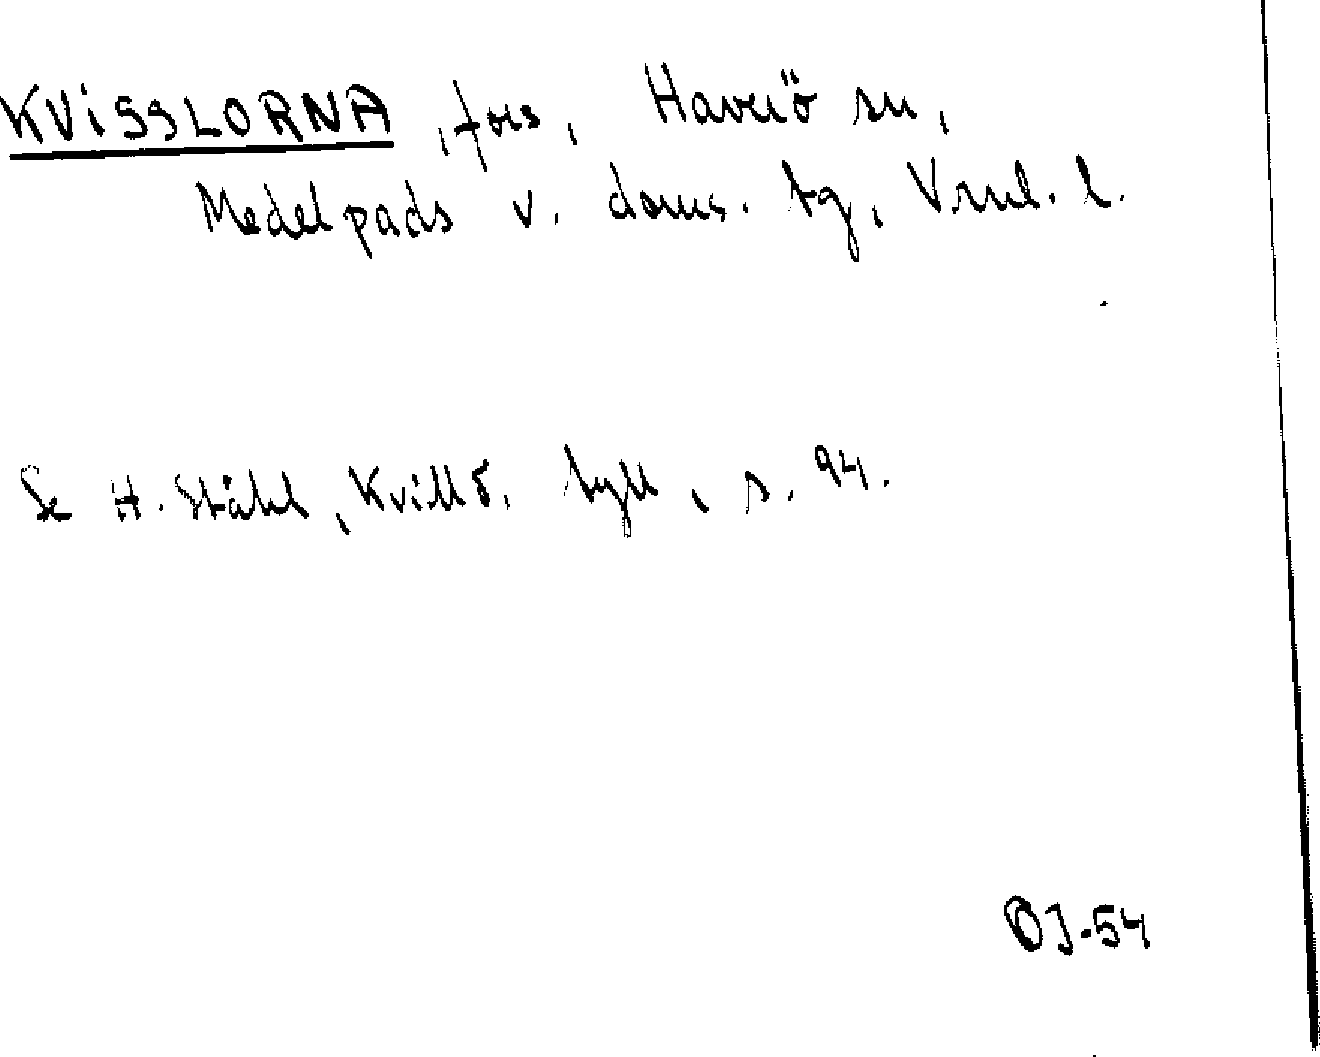 KVISSLORNA, fors, Haverö sn,
Medelpads v. doms. tg, Vrnl. l.
Se H. Ståhl, Kvill o. tyll, s. 94.
OJ-54